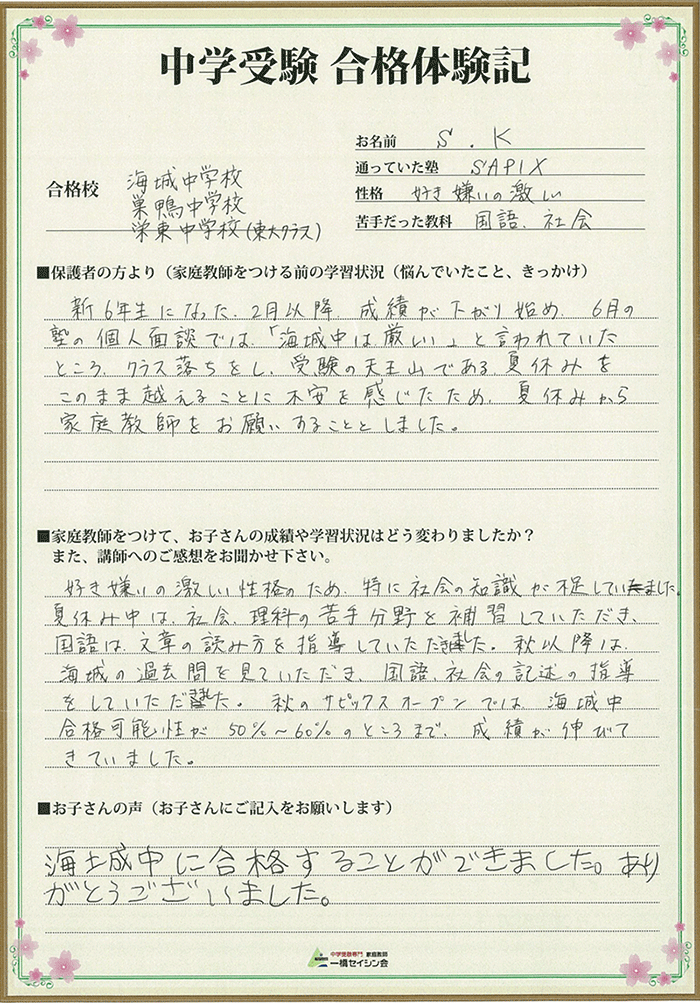 中学受験 合格体験記
お名前 S.K
通っていた塾 SAPIX
性格 好き嫌いの激しい
苦手だった教科 国語、社会
合格校 海城中学校
巣鴨中学校
栄東中学校(東大クラス)
■保護者の方より（家庭教師をつける前の学習状況（悩んでいたこと、きっかけ）
新6年生になった、2月以降、成績が下がり始め、6月の
塾の個人面談では、「海城中は厳しい」と言われていた
ところ、クラス落ちをし、受験の天王山である、夏休みを
このまま越えることに不安を感じたため、夏休みから
家庭教師をお願いすることとしました。
■家庭教師をつけて、お子さんの成績や学習状況はどう変わりましたか？
また、講師へのご感想をお聞かせ下さい。
好き嫌いの激しい性格のため、特に社会の知識が不足していました。
夏休み中は、社会、理科の苦手分野を補習していただき、
国語は、文章の読み方を指導していただきました。秋以降は、
海城の過去問を見ていただき、国語、社会の記述の指導
をしていただきました。秋のサピックスオープンでは、海城中
合格可能性が50%～60%のところまで、成績が伸びて
きていました。
■お子さんの声（お子さんにご記入をお願いします）
海城中に合格することができました。あり
がとうございました。
中学受験専門 家庭教師
一橋セイシン会